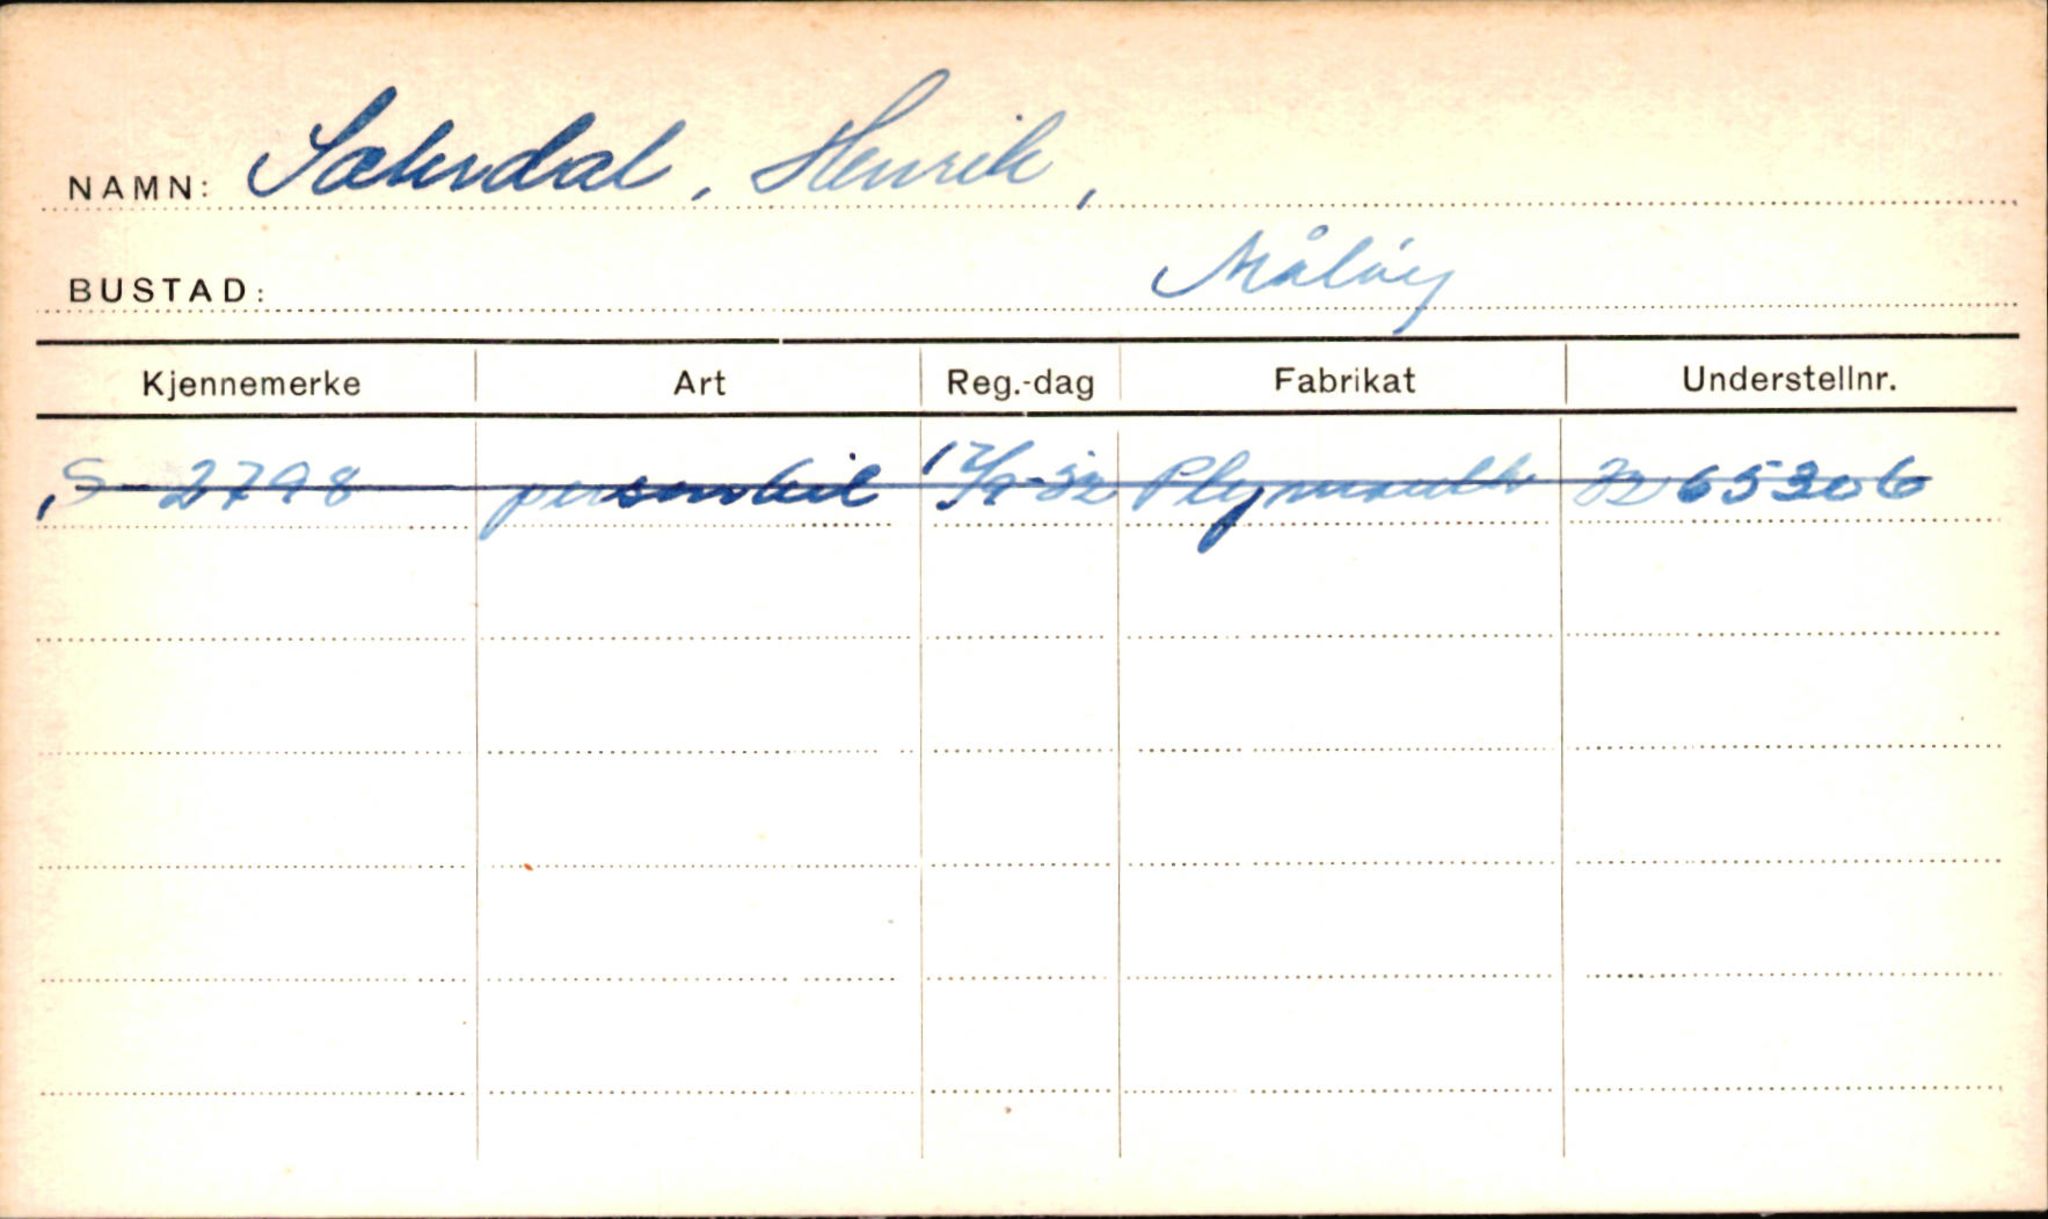 NAMN: Sæterdal, Henrik,
BUSTAD: Måløy
Kjennemerke Art Reg.-dag Fabrikat Understellnr.
S-2798 personbil 17/9-52 Plymouth